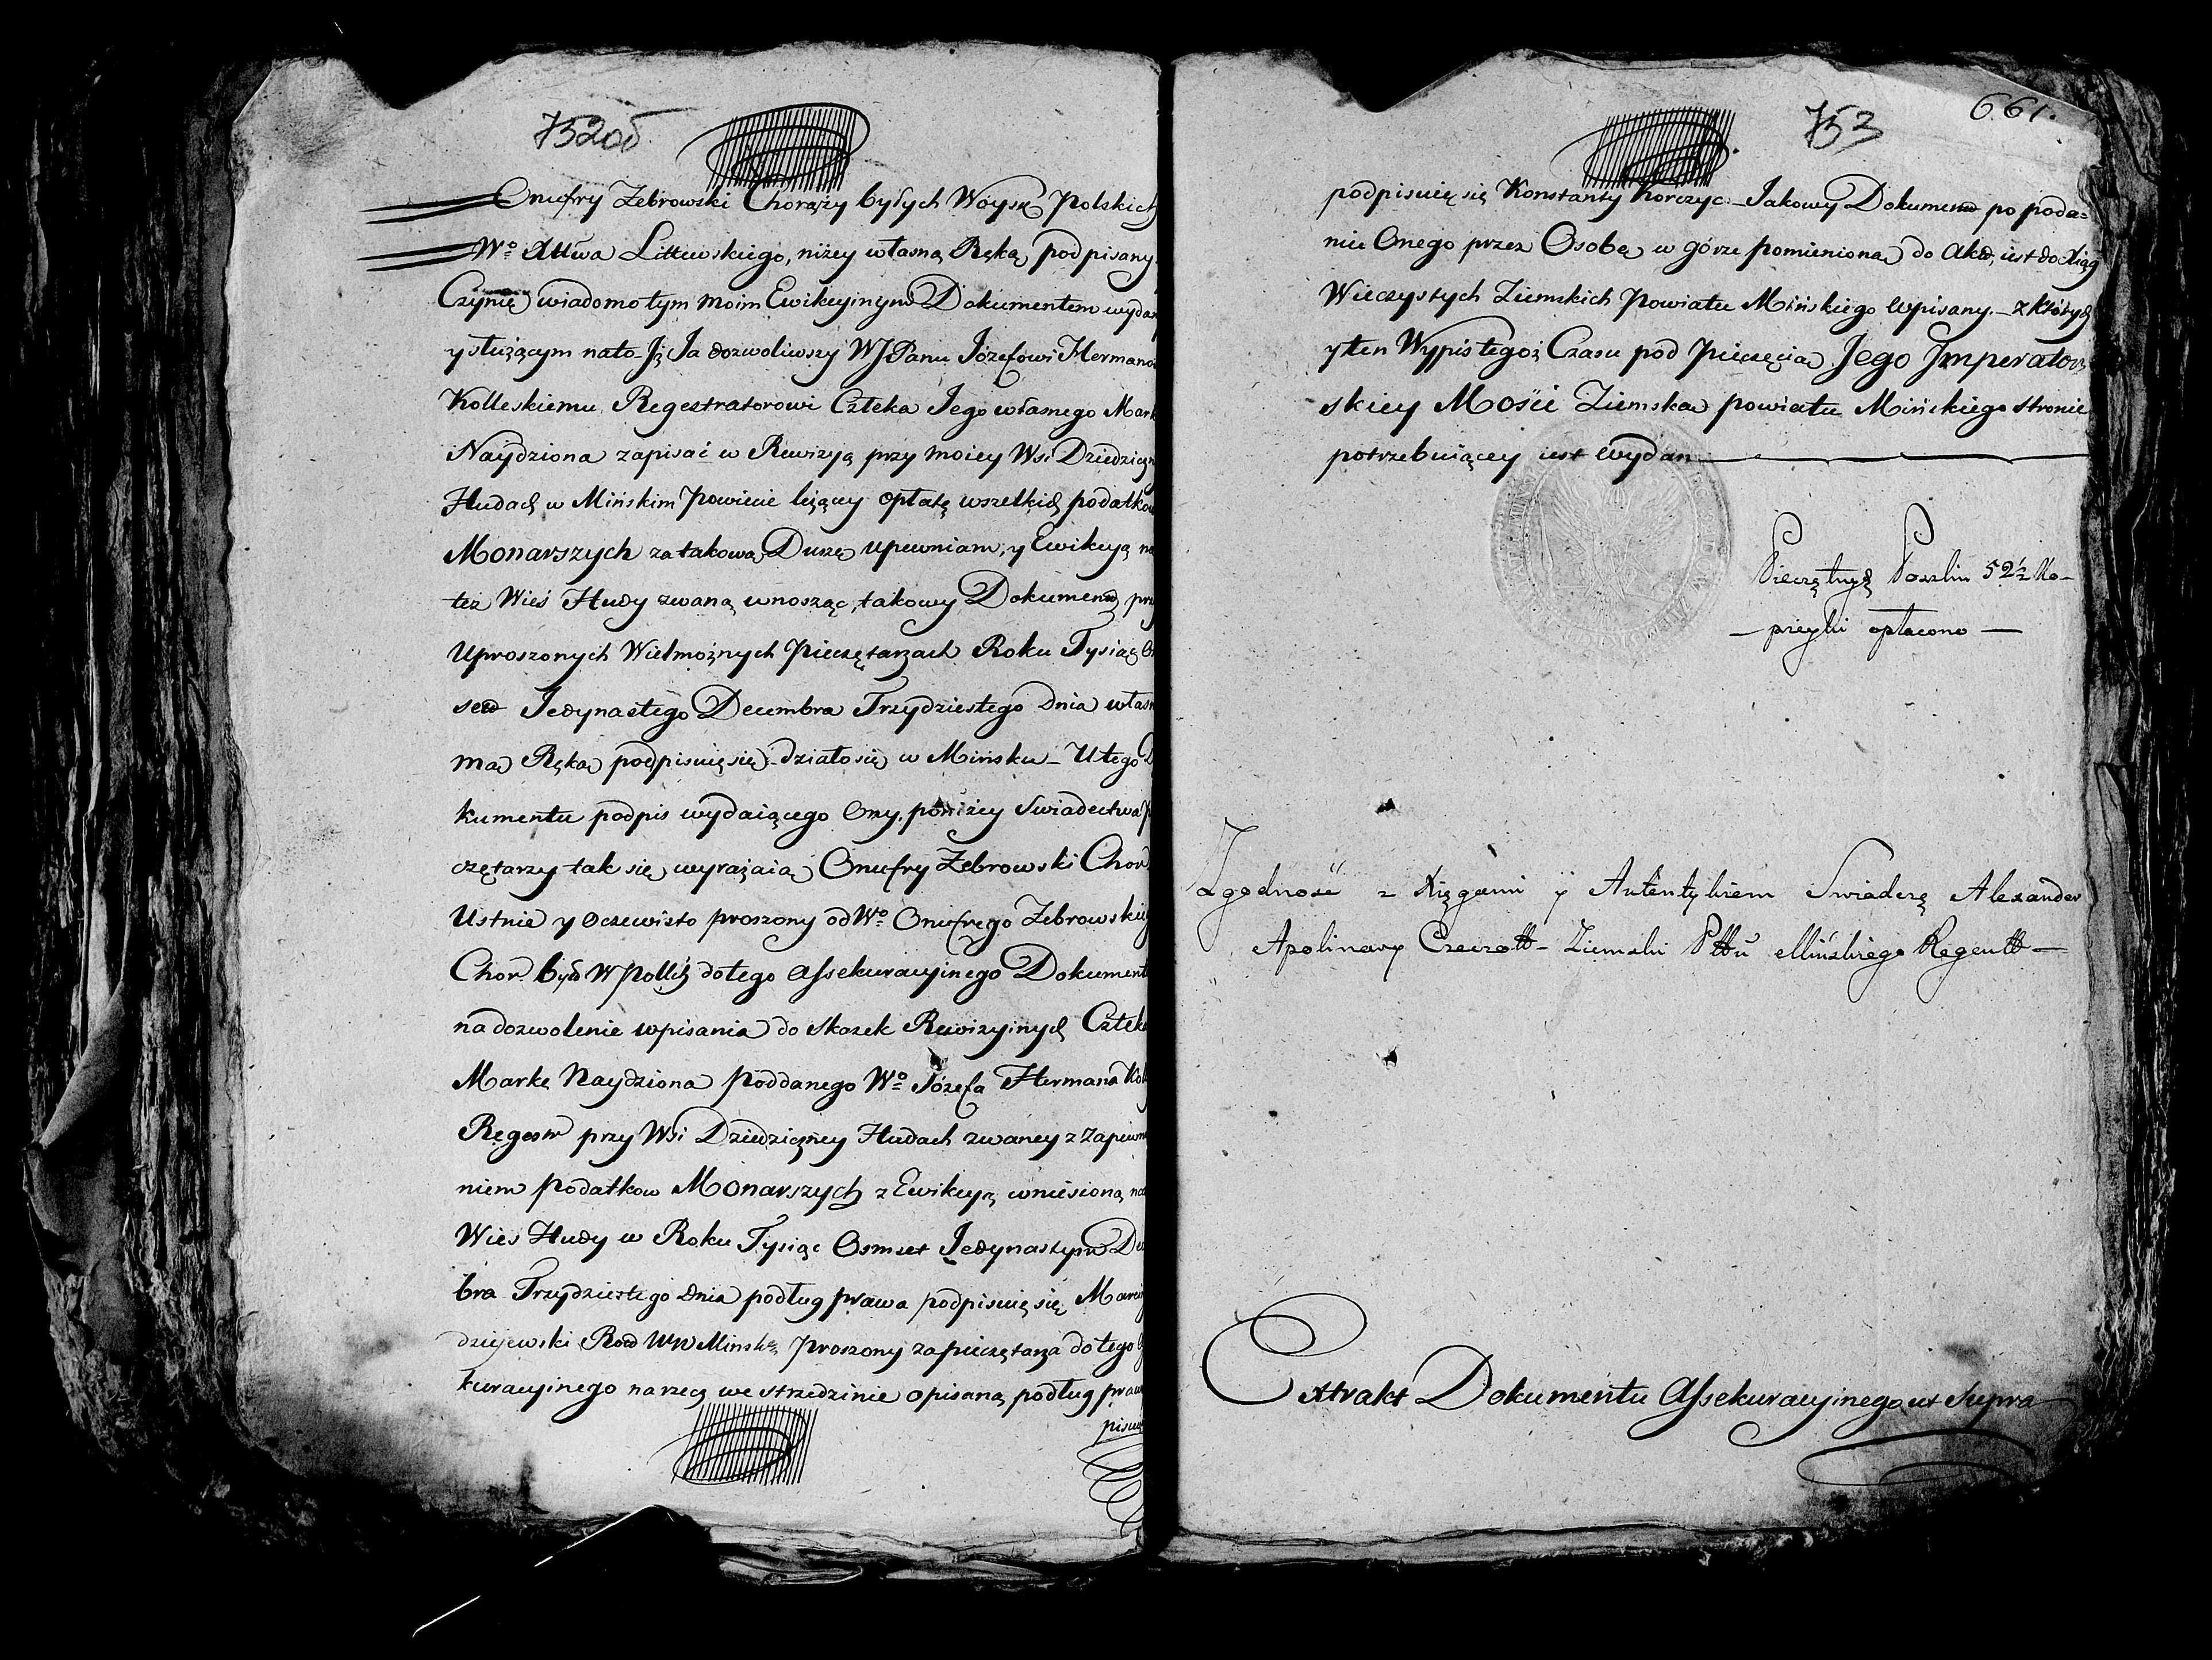 752об
Onufry Zebrowski Chorąży byłych Woysk Polskich
Wo Xttwa Littewskiego, niżey własną Ręką podpisany
Czynię wiadomo tym moim Ewikcyinym Dokumentem wydan
y służącym na to Jż Ja dozwoliwszy WJPanu Józefowi Hermano
Kolleskiemu Regestratorowi Człeka Jego własnego Mark
Naydziona zapisać w Rewizyą przy moiey Wsi Dziedziczn
Hudach w Mińskim Powiecie leżący opłatę wszelkich podatkow
Monarszych za takową Duszę upewniam, y Ewikcyą na
też Wieś Hudy zwaną wnosząc, takowy Dokument prz
Uproszonych Wielmożnych Pieczętarzach Roku Tysiąc Os
set Jedynastego Decembra Trzydziestego Dnia własn
ma Ręką podpisuię się działo się w Mińsku U tego D
kumentu podpis wydaiącego Ony, poniżey Swiadectwa P
czętarzy tak się wyrażaią Onufry Zebrowski Chor
Ustnie y Oczewisto proszony od Wo Onufrego Zebrowskie
Chor. był W Pollch do tego Assekuracyinego Dokument
na dozwolenie wpisania do Skazek Rewizyinych Człek
Marka Naydziona Poddanego Wo Józefa Hermana Kol
Regestr przy Wsi Dziedziczney Hudach zwaney z Zapewn
niem podatkow Monarszych z Ewikcyą wniesioną na
Wieś Hudy w Roku Tysiąc Osmset Jedynastym De
bra Trzydziestego Dnia podług prawa podpisuię się Marci
dziejewski Rod WW Minski Proszony za pieczętarza do tego
kuracyinego na rzecz we strzedzinie opisaną podług praw
pisuię
753
661.
podpisuię się Konstanty Korczyc Jakowy Dokument po poda=
niu Onego przez Osobę w górze pomienioną do Akt, jest do Xiąg
Wieczystych Ziemskich Powiatu Mińskiego wpisany. z których
y ten Wypis tegoż Czasu pod Pieczęcią Jego Jmperator
skiey Mości Ziemską powiatu Mińskiego Stronie
potrzebuiącey jest wydan
Pieczętnych Poszlin 52½ Ko-
pieyki opłacono
Zgodność z Xięgami y Autentykiem Swiadczę Alexander
Apolinary Czeczott Ziemski Pttu Mińskiego Regentt
Extrakt Dokumentu Assekuracyinego ut Supra